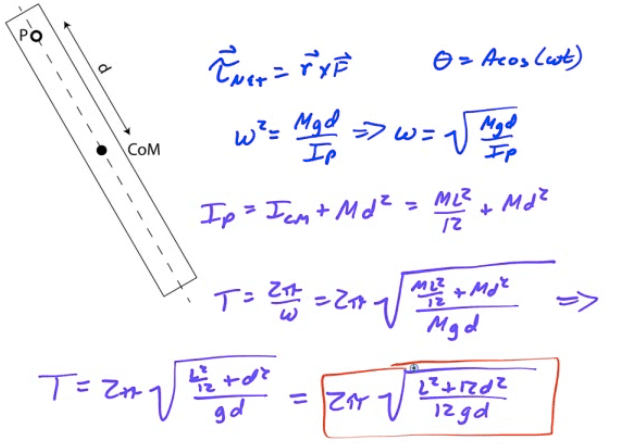 P
d
CoM
τ⃗_Net = r⃗ x F⃗
θ = Acos(ωt)
ω² = Mgd/I_P => ω = √(Mgd/I_P)
I_P = I_CM + Md² = ML²/12 + Md²
T = 2π/ω = 2π √((ML²/12 + Md²)/Mgd) =>
T = 2π √((L²/12 + d²)/gd) = 2π √((L²+12d²)/12gd)